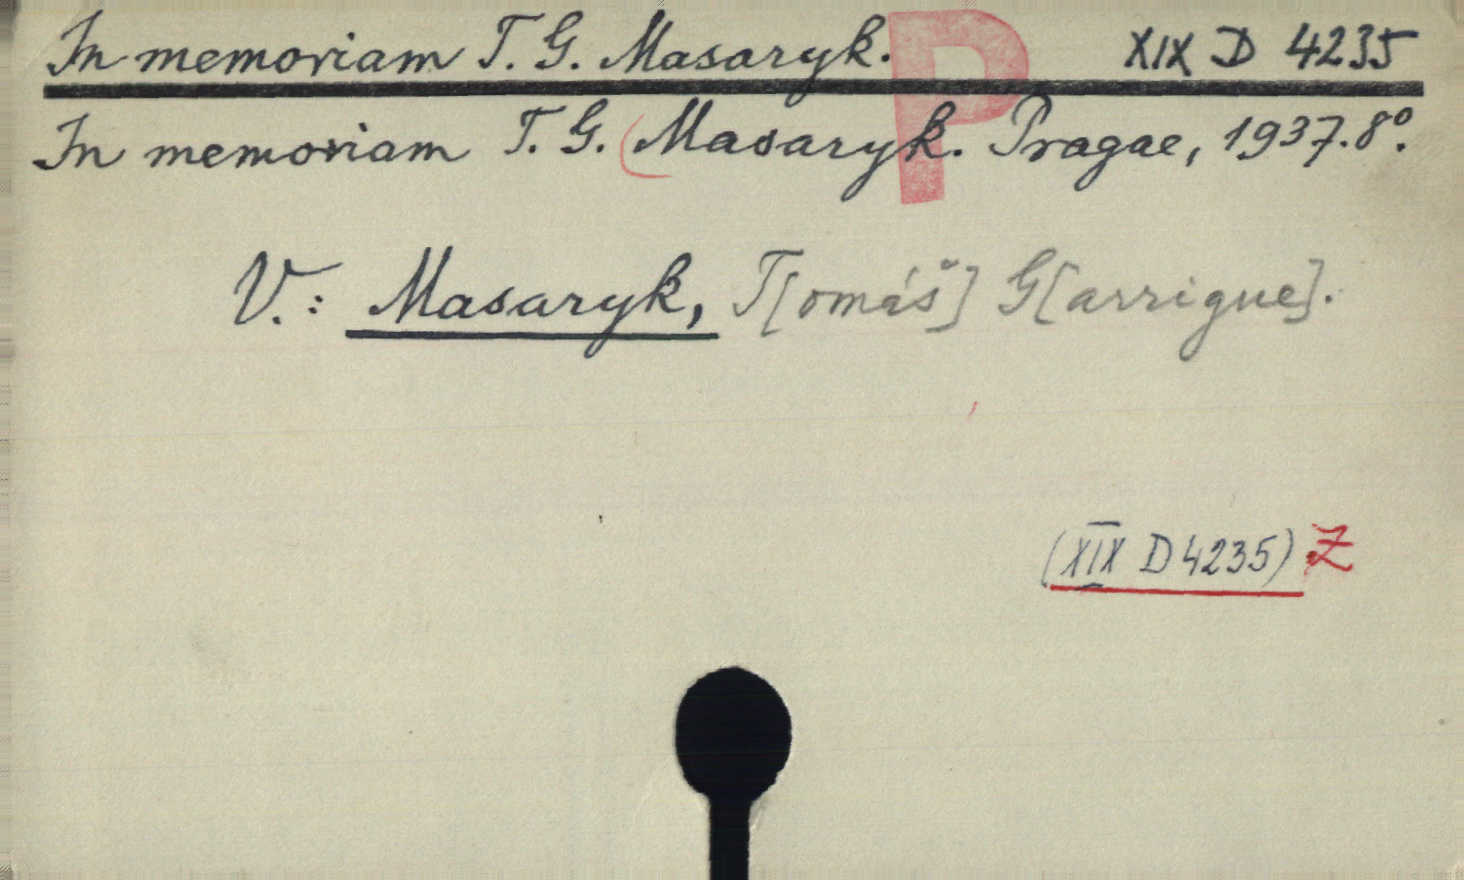 In memoriam T. G. Masaryk. P XIX D 4235
In memoriam T. G. Masaryk. Pragae, 1937. 8°.
V.: Masaryk, T[omáš] G[arrigue].
(XIX D 4235) Z